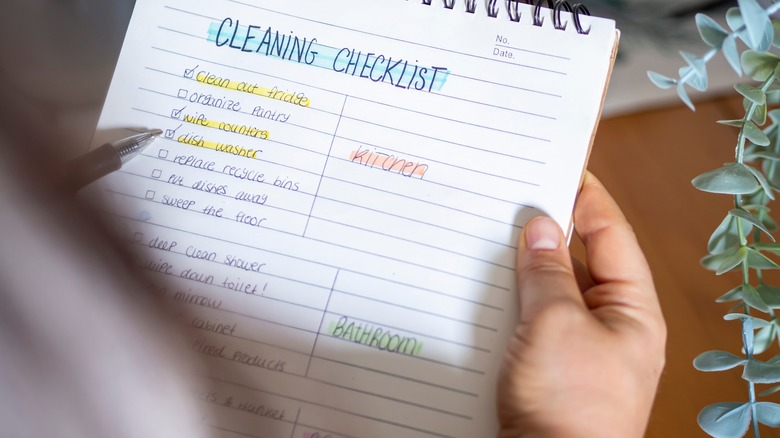 CLEANING CHECKLIST
No.
Date.
clean out fridge
organize pantry
wipe counters
dish washer
replace recycle bins
put dishes away
sweep the floor
Kitchen
deep clean shower
wipe down toilet!
mirrow
cabinet
products
BATHROOM